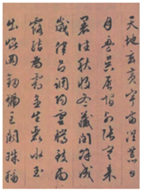 天地玄黃宇宙洪荒日
月盈昃辰宿列張寒來
暑往秋收冬藏閏餘成
歲律呂調陽雲騰致雨
露結為霜金生麗水玉
出崑岡劍號巨闕珠稱